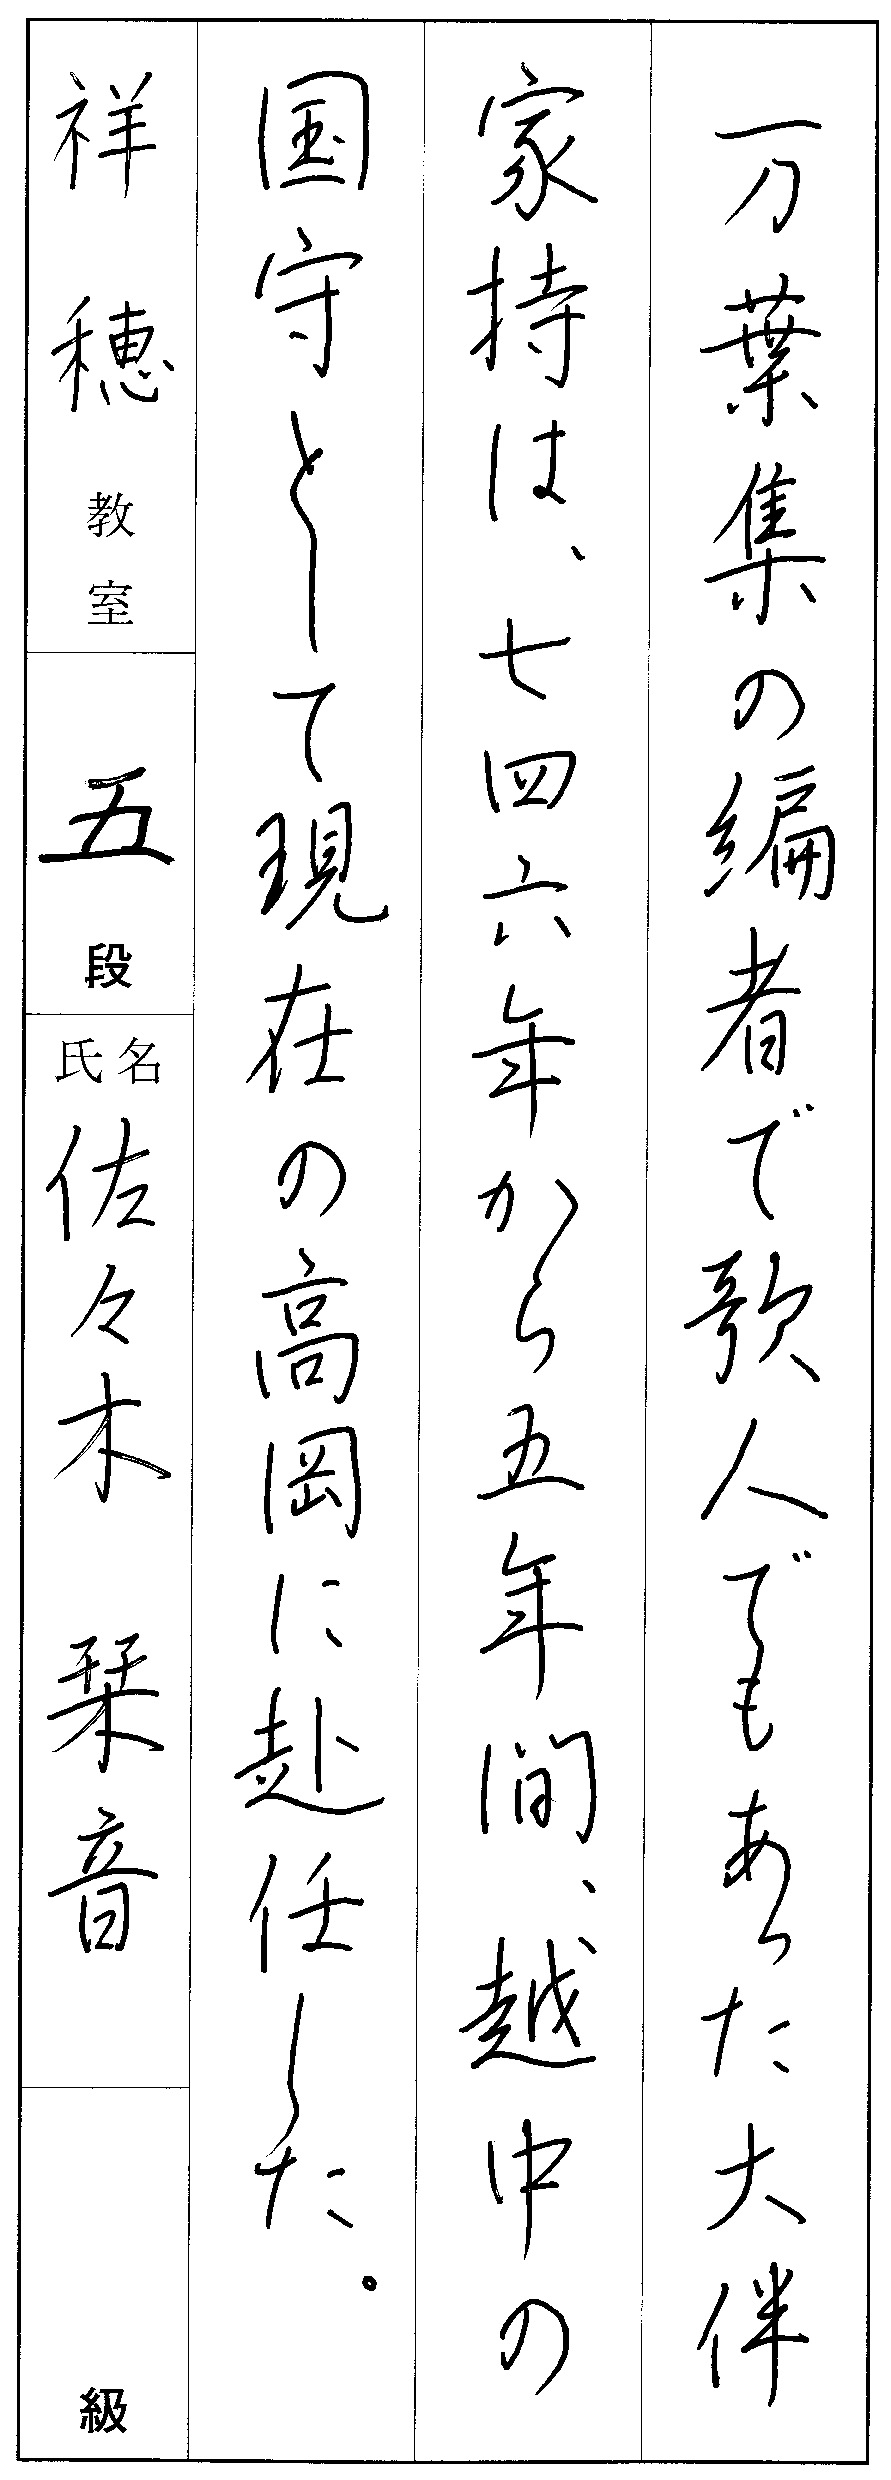 万葉集の編者で歌人でもあった大伴
家持は、七四六年から五年間、越中の
国守として現在の高岡に赴任した。
祥穂教室
五段
氏名
佐々木 栞音
級